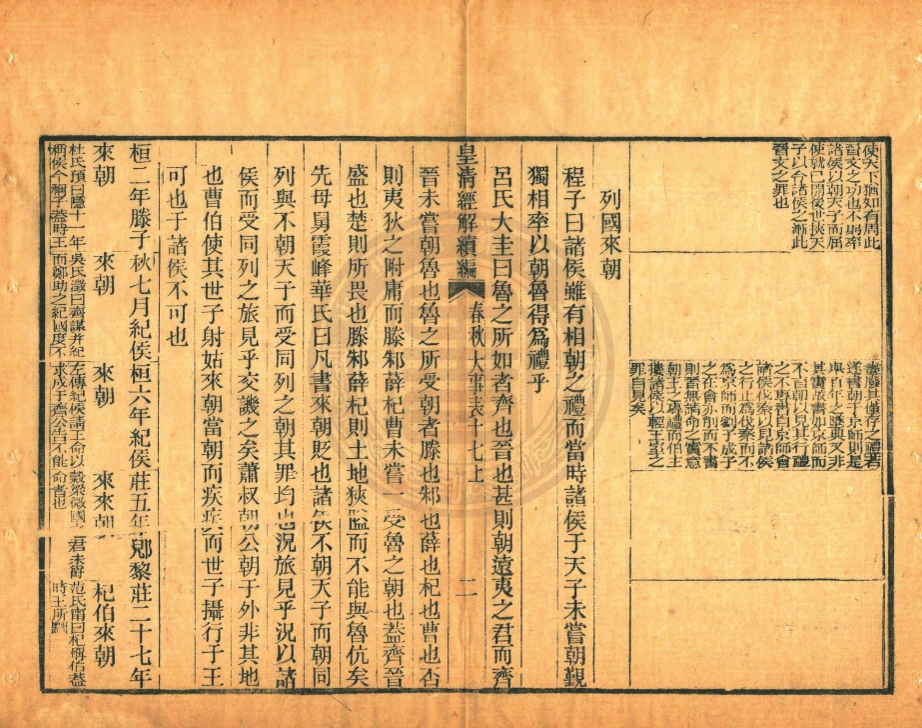 使天下猶知有周此
晉文之功也不朝率
諸侯以朝天子而屈
使就已開後世挾天
子以令諸侯之漸此
晉文之罪也
蓋廢其僅存之禮若
遂書朝于京師則是
與百年之墜典又非
其實故書如京師而
不言朝以見其行禮
之不專書自京師會
諸侯伐秦以見諸侯
之行止為伐秦而不
為京師而劉子成子
之在會亦削而不書
則晉無請命之實
朝王之專禮而伯主
摟諸侯以輕王室之
罪自見矣
列國來朝
程子曰諸侯雖有相朝之禮而當時諸侯于天子未嘗朝覲
獨相率以朝魯得為禮乎
呂氏大圭曰魯之所如者齊也晉也甚則朝遠夷之君而齊
皇清經解續編 春秋大事表十七上 二
晉未嘗朝魯也魯之所受朝者滕也邾也薛也杞也曹也否
則夷狄之附庸而滕邾薛杞曹未嘗一受魯之朝也蓋齊晉
盛也楚則所畏也滕邾薛杞則土地狹隘而不能與魯伉矣
先母舅霞峰華氏曰凡書來朝貶也諸侯不朝天子而朝同
列與不朝天子而受同列之朝其罪均也況旅見乎況以諸
侯而受同列之旅見乎交譏之矣蕭叔朝公朝于外非其地
也曹伯使其世子射姑來朝當朝而疾疾而世子攝行于王
可也于諸侯不可也
桓二年滕子
來朝
杜氏預曰隱十一年
稱侯今稱子蓋時王
秋七月紀侯
來朝
吳氏澂曰齊謀并紀
而鄭助之紀國度不
桓六年紀侯
來朝
左傳紀侯請王命以
求成于齊公告不能
莊五年郳黎
來來朝
穀梁微國之君未爵
命者也
莊二十七年
杞伯來朝
范氏甯曰杞稱伯蓋
時王所黜